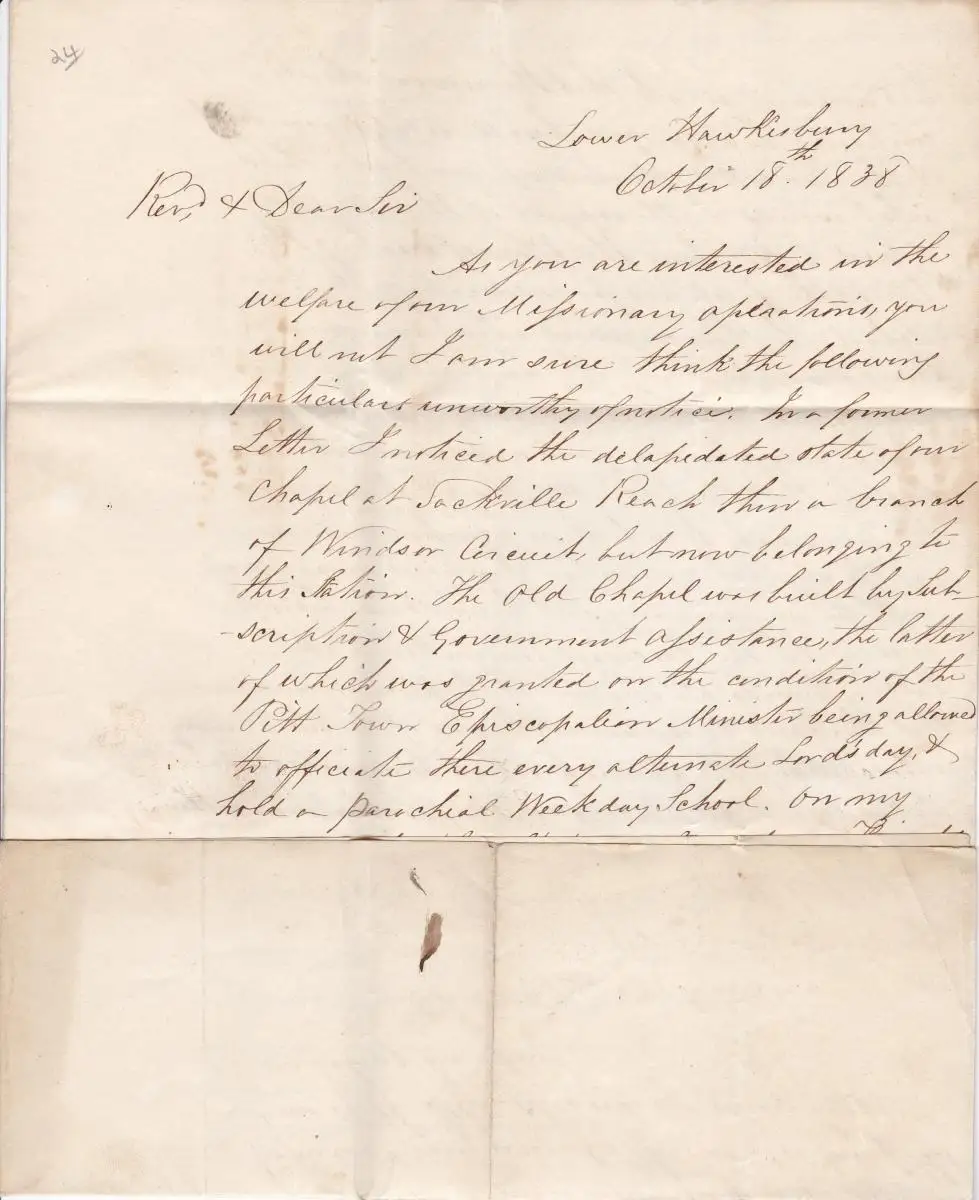 24
Lower Hawkesbury
October 18th. 1838
Revd, & Dear Sir
As you are interested in the
welfare of our Missionary operations, you
will not I am sure think the following
particulars unworthy of notice. In a former
Letter I noticed the delapidated state of our
Chapel at Sackville Reach then a branch
of Windsor Circuit, but now belonging to
this Station. The Old Chapel was built by Sub-
-scription & Government assistance, the latter
of which was granted on the condition of the
Pitt Town Episcopalian Minister being allowed
to officiate there every alternate Lord's day, &
hold a Parochial Weekday School. On my